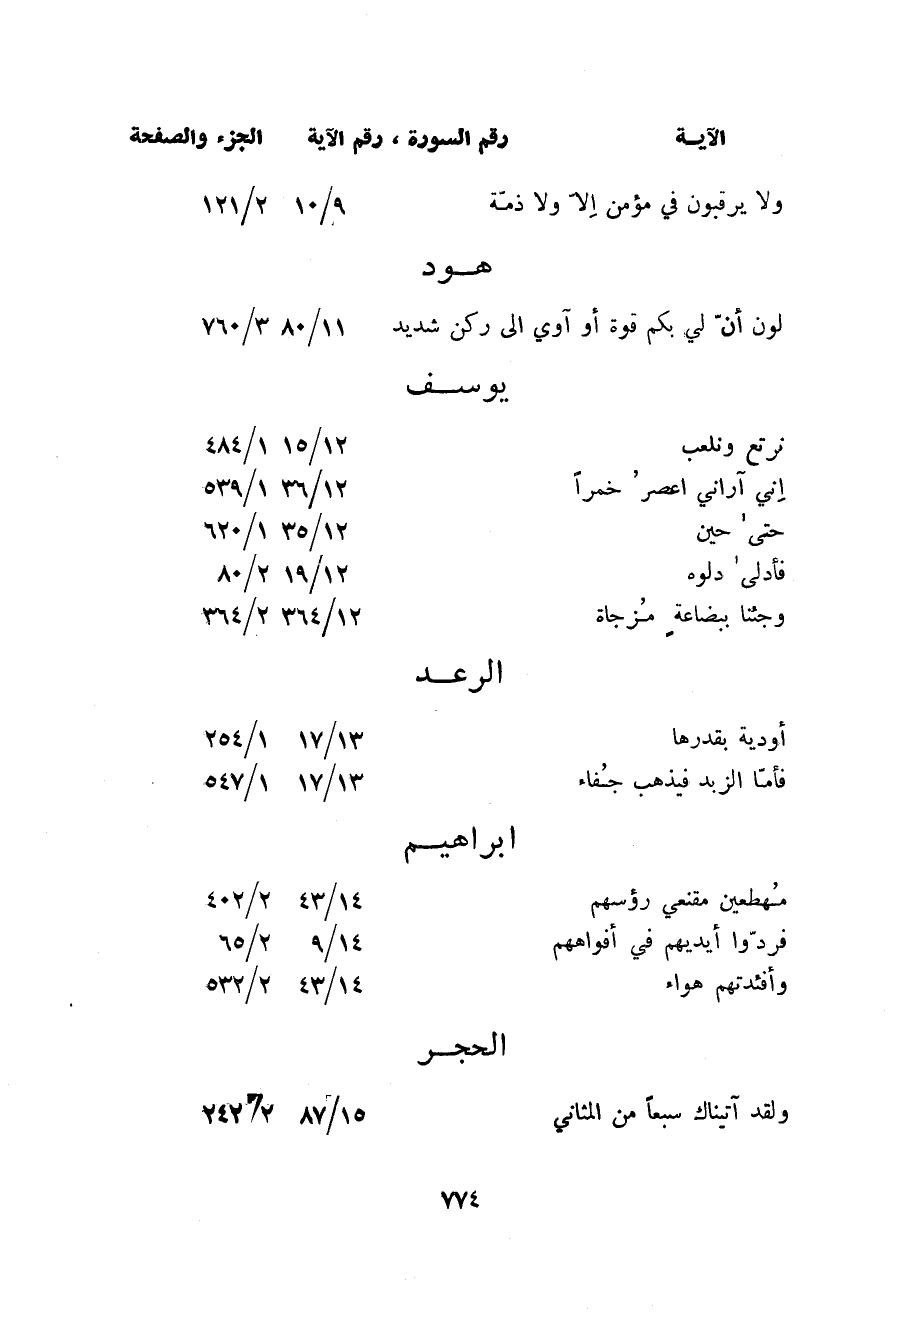 الآيـة رقم السورة ، رقم الآية الجزء والصفحة
ولا يرقبون في مؤمن إلاّ ولا ذمّة ٩/١٠ ٢/١٢١
هـود
لون أنّ لي بكم قوة أو آوي الى ركن شديد ١١/٨٠ ٣/٧٦٠
يوسـف
نرتع ونلعب ١٢/١٥ ١/٤٨٤
إني آراني اعصرُ خمراً ١٢/٣٦ ١/٥٣٩
حتى حين ١٢/٣٥ ١/٦٢٠
فأدلى دلوه ١٢/١٩ ٢/٨٠
وجئنا ببضاعةٍ مُزجاة ١٢/٣٦٤ ٢/٣٦٤
الرعـد
أودية بقدرها ١٣/١٧ ١/٢٥٤
فأمّا الزبد فيذهب جُفاء ١٣/١٧ ١/٥٤٧
ابراهيـم
مُهطعين مقنعي رؤسهم ١٤/٤٣ ٢/٤٠٢
فردّوا أيديهم في أفواههم ١٤/٩ ٢/٦٥
وأفئدتهم هواء ١٤/٤٣ ٢/٥٣٢
الحجـر
ولقد آتيناك سبعاً من المثاني ١٥/٨٧ ٢/٢٤٢
٧٧٤